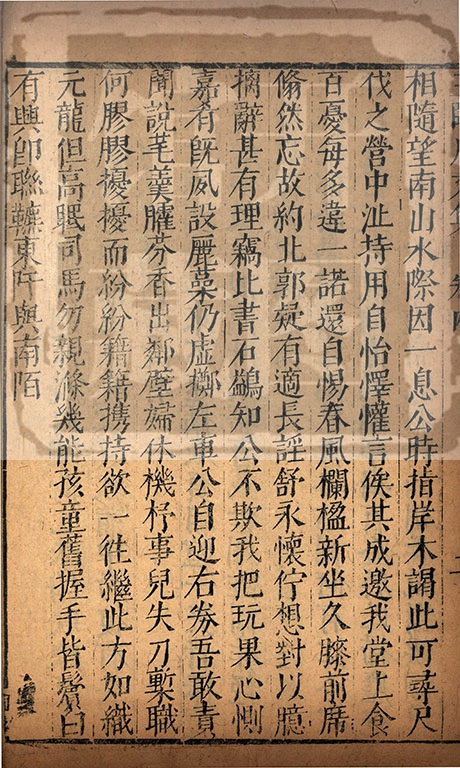 相隨望南山水際因一息公時指岸木謂此可尋尺
代之營中沚持用自怡懌懽言俟其成邀我堂上食
百憂每多違一諾還自惕春風欄楹新坐久膝前席
翛然忘故約北郭疑有適長謡舒永懷佇想對以臆
摛辭甚有理竊比書石鷁知公不欺我把玩果心惻
嘉肴旣夙設麗藻仍虛擲左車公自迎右劵吾敢責
聞說芼羹臛芬香出鄰壁婦休機杼事兒失刀槧職
何膠膠擾擾而紛紛籍籍携持欲一徃繼此方如織
元龍但高眠司馬勿親滌幾能孩童舊握手皆鬢白
有興卽聯鑣東阡與南陌